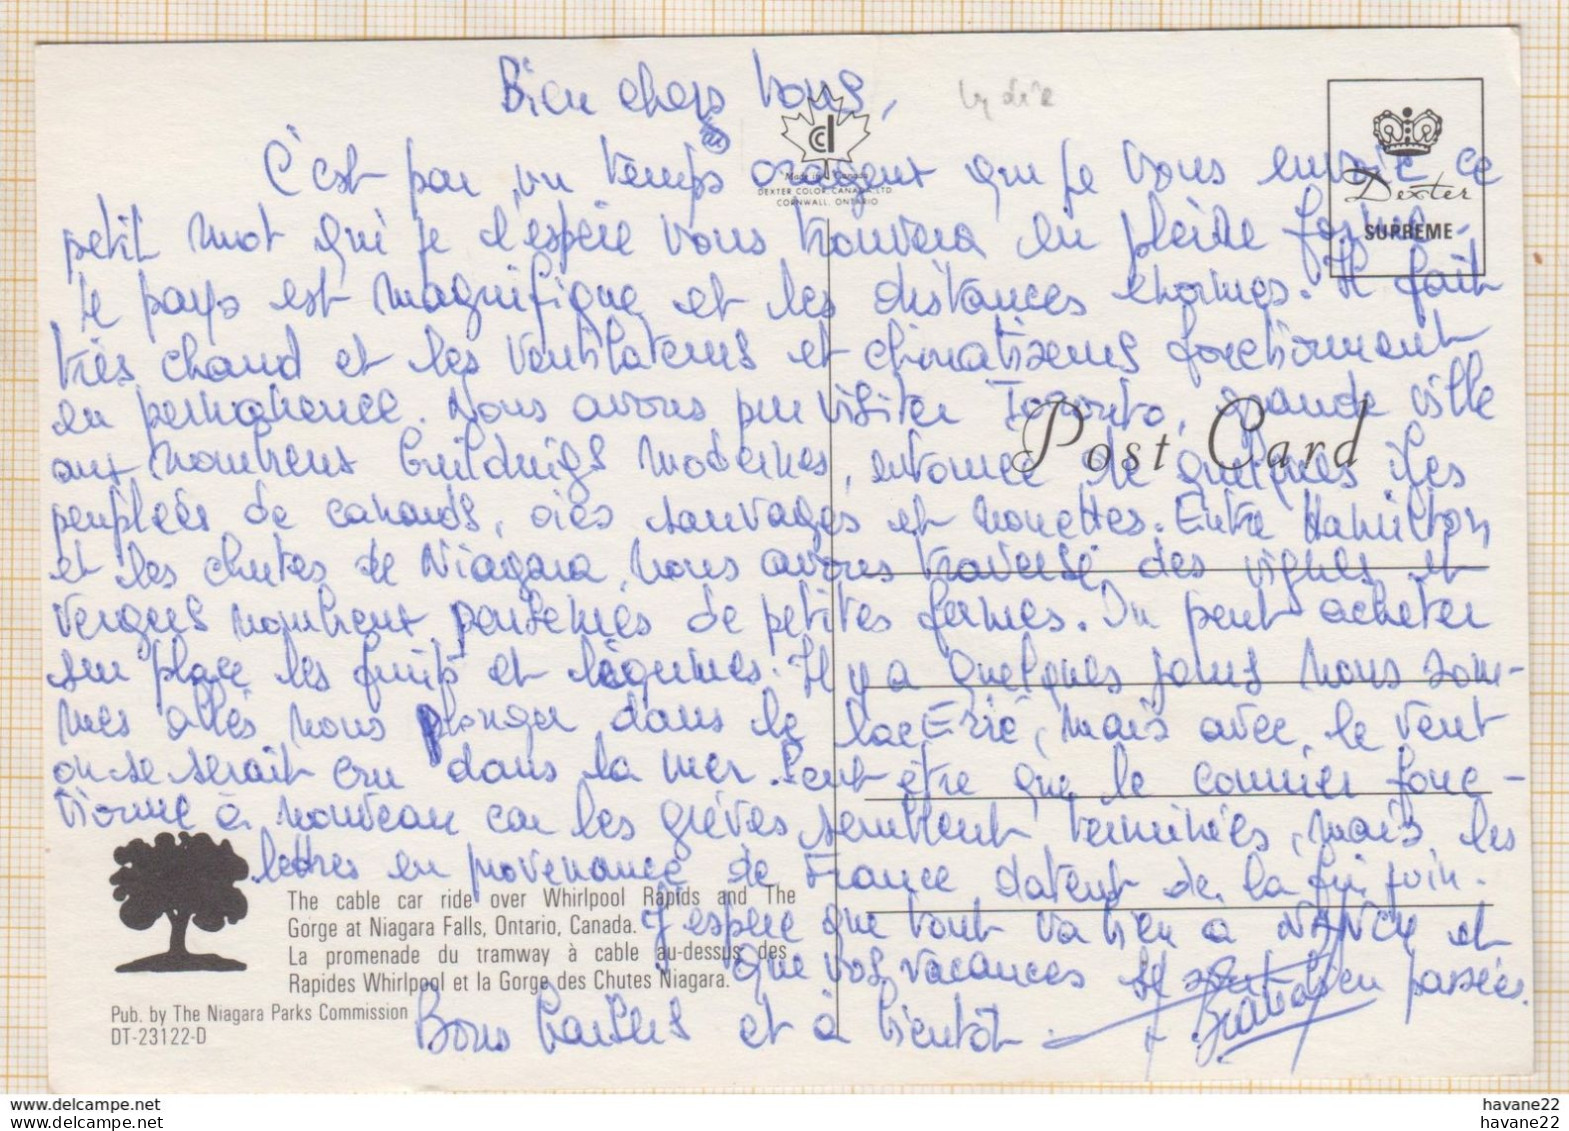 Bien chers vous,
C'est par un temps orageux que je vous envoie ce
petit mot qui je l'espère vous trouvera en pleine forme.
Le pays est magnifique et les distances énormes. Il fait
très chaud et les ventilateurs et climatiseurs fonctionnent
en permanence. Nous avons pu visiter Toronto, grande ville
aux nombreux buildings modernes, entourée de quelques îles
peuplées de canards, oies sauvages et mouettes. Entre Hamilton
et les chutes de Niagara nous avons traversé des vignes et
vergers nombreux parsemés de petites fermes. On peut acheter
sur place les fruits et légumes. Il y a quelques jours nous som-
mes allés nous plonger dans le lac Erié, mais avec le vent
on se serait cru dans la mer. Peut être que le courrier fonc-
tionne à nouveau car les grèves semblent terminées, mais les
lettres en provenance de France datent de la fin juin.
J'espère que tout va bien à NANCY et
que vos vacances se sont bien passées.
Bons baisers et à bientôt
Made in Canada
DEXTER COLOR CANADA LTD.
CORNWALL, ONTARIO
Dexter
SUPREME
Post Card
The cable car ride over Whirlpool Rapids and The
Gorge at Niagara Falls, Ontario, Canada.
La promenade du tramway à cable au-dessus des
Rapides Whirlpool et la Gorge des Chutes Niagara.
Pub. by The Niagara Parks Commission
DT-23122-D
website : delcampe.net
uploaded by : havane22
havane22
havane22